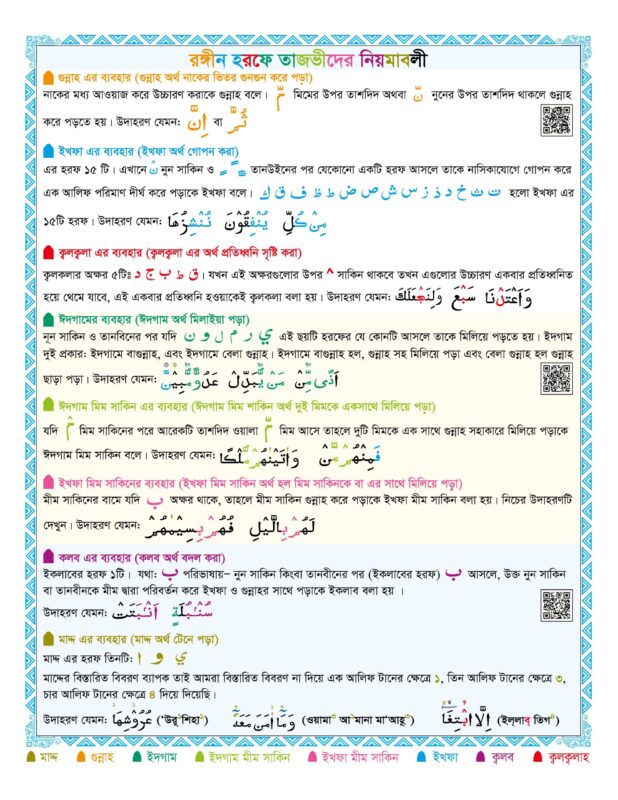 রঙ্গীন হরফে তাজভীদের নিয়মাবলী
গুন্নাহ এর ব্যবহার (গুন্নাহ অর্থ নাকের ভিতর গুনগুন করে পড়া)
নাকের মধ্য আওয়াজ করে উচ্চারণ করাকে গুন্নাহ বলে। مّ মিমের উপর তাশদিদ অথবা نّ নুনের উপর তাশদিদ থাকলে গুন্নাহ
করে পড়তে হয়। উদাহরণ যেমন: اِنَّ বা ثُمَّ
ইখফা এর ব্যবহার (ইখফা অর্থ গোপন করা)
এর হরফ ১৫ টি। এখানে نْ নুন সাকিন ও ـًـٍـٌ তানউইনের পর যেকোনো একটি হরফ আসলে তাকে নাসিকাযোগে গোপন করে
এক আলিফ পরিমাণ দীর্ঘ করে পড়াকে ইখফা বলে। ت ث خ د ذ ز س ش ص ض ط ظ ف ق ك হলো ইখফা এর
১৫টি হরফ। উদাহরণ যেমন: مِنْ كُلِّ يُنْفِقُوْنَ نُنْشِزُهَا
ক্বলক্বলা এর ব্যবহার (ক্বলক্বলা এর অর্থ প্রতিধ্বনি সৃষ্টি করা)
ক্বলকলার অক্ষর ৫টিঃ ق ط ب ج د। যখন এই অক্ষরগুলোর উপর ْ সাকিন থাকবে তখন এগুলোর উচ্চারণ একবার প্রতিধ্বনিত
হয়ে থেমে যাবে, এই একবার প্রতিধ্বনি হওয়াকেই ক্বলকলা বলা হয়। উদাহরণ যেমন: وَاَعْتَدْنَا سَبْعَ وَلِنَجْعَلَكَ
ঈদগামের ব্যবহার (ঈদগাম অর্থ মিলাইয়া পড়া)
নূন সাকিন ও তানবিনের পর যদি ي ر م ل و ن এই ছয়টি হরফের যে কোনটি আসলে তাকে মিলিয়ে পড়তে হয়। ইদগাম
দুই প্রকার: ইদগামে বাগুন্নাহ, এবং ইদগামে বেলা গুন্নাহ। ইদগামে বাগুন্নাহ হল, গুন্নাহ সহ মিলিয়ে পড়া এবং বেলা গুন্নাহ হল গুন্নাহ
ছাড়া পড়া। উদাহরণ যেমন: اَذًى مِّنْ مَنْ يُّبَدِّلْ عَدُوٌّ مُّبِيْنٌ
ঈদগাম মিম সাকিন এর ব্যবহার (ঈদগাম মিম শাকিন অর্থ দুই মিমকে একসাথে মিলিয়ে পড়া)
যদি مْ মিম সাকিনের পরে আরেকটি তাশদিদ ওয়ালা مّ মিম আসে তাহলে দুটি মিমকে এক সাথে গুন্নাহ সহাকারে মিলিয়ে পড়াকে
ঈদগাম মিম সাকিন বলে। উদাহরণ যেমন: فَمِنْهُمْ مَّنْ وَاٰتَيْنٰهُمْ مُّلْكًا
ইখফা মিম সাকিনের ব্যবহার (ইখফা মিম সাকিন অর্থ হল মিম সাকিনকে বা এর সাথে মিলিয়ে পড়া)
মীম সাকিনের বামে যদি ب অক্ষর থাকে, তাহলে মীম সাকিন গুন্নাহ করে পড়াকে ইখফা মীম সাকিন বলা হয়। নিচের উদাহরণটি
দেখুন। উদাহরণ যেমন: لَهُمْ بِالَّيْلِ فَهُمْ بِسِيْمٰهُمْ
কলব এর ব্যবহার (কলব অর্থ বদল করা)
ইকলাবের হরফ ১টি। যথা: ب পরিভাষায়– নুন সাকিন কিংবা তানবীনের পর (ইকলাবের হরফ) ب আসলে, উক্ত নুন সাকিন
বা তানবীনকে মীম দ্বারা পরিবর্তন করে ইখফা ও গুন্নাহর সাথে পড়াকে ইকলাব বলা হয় ।
উদাহরণ যেমন: سُنْۢبُلَةٍ اَنْۢبَتَتْ
মাদ্দ এর ব্যবহার (মাদ্দ অর্থ টেনে পড়া)
মাদ্দ এর হরফ তিনটি: ا و ي
মাদ্দের বিস্তারিত বিবরণ ব্যাপক তাই আমরা বিস্তারিত বিবরণ না দিয়ে এক আলিফ টানের ক্ষেত্রে ১, তিন আলিফ টানের ক্ষেত্রে ৩,
চার আলিফ টানের ক্ষেত্রে ৪ দিয়ে দিয়েছি।
উদাহরণ যেমন: عُرُوْشِهَا ('উরূ'শিহা') وَمَاۤ اٰمَنَ مَعَهٗۤ (ওয়ামা' আ'মানা মা'আহূ') اِلَّا ابْتِغَآءَ (ইল্লাব্ তিগা')
মাদ্দ গুন্নাহ ইদগাম ইদগাম মীম সাকিন ইখফা মীম সাকিন ইখফা ক্বলব ক্বলক্বলাহ